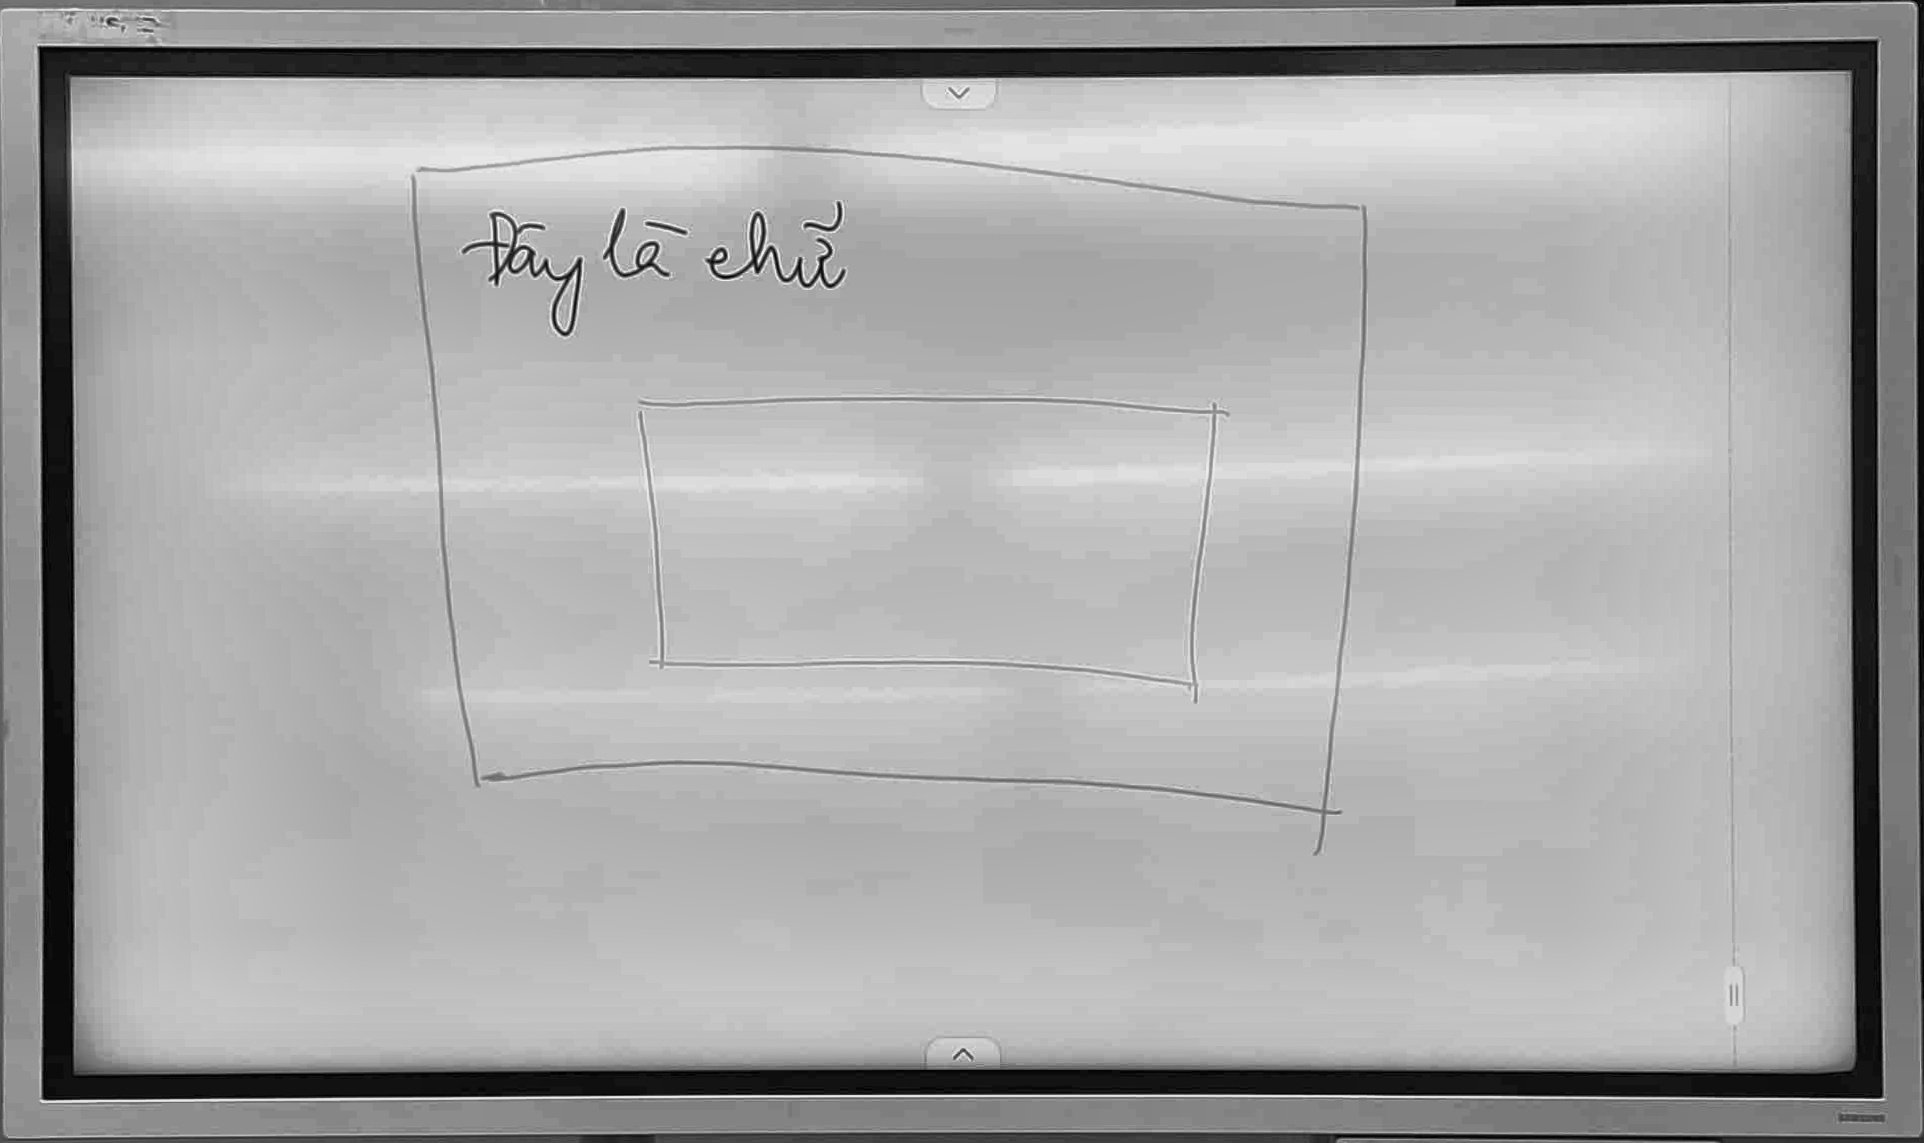 Đây là chữ